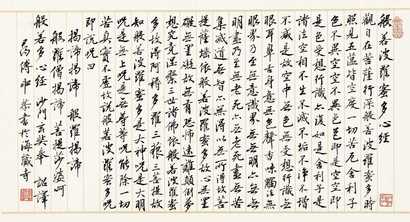 般若波羅蜜多心經
觀自在菩薩行深般若波羅蜜多時
照見五蘊皆空度一切苦厄舍利子
色不異空空不異色色即是空空即
是色受想行識亦復如是舍利子是
諸法空相不生不滅不垢不淨不增
不減是故空中無色無受想行識無
眼耳鼻舌身意無色聲香味觸法無
眼界乃至無意識界無無明亦無無
明盡乃至無老死亦無老死盡無苦
集滅道無智亦無得以無所得故菩
提薩埵依般若波羅蜜多故心無罣
礙無罣礙故無有恐怖遠離顛倒夢
想究竟涅槃三世諸佛依般若波羅蜜
多故得阿耨多羅三藐三菩提故
知般若波羅蜜多是大神咒是大明
咒是無上咒是無等等咒能除一切
苦真實不虛故說般若波羅蜜多咒
即說咒曰
揭諦揭諦 般羅揭諦
般羅僧揭諦 菩提莎婆呵
般若多心經 沙門玄奘奉 詔譯
書於海藏寺